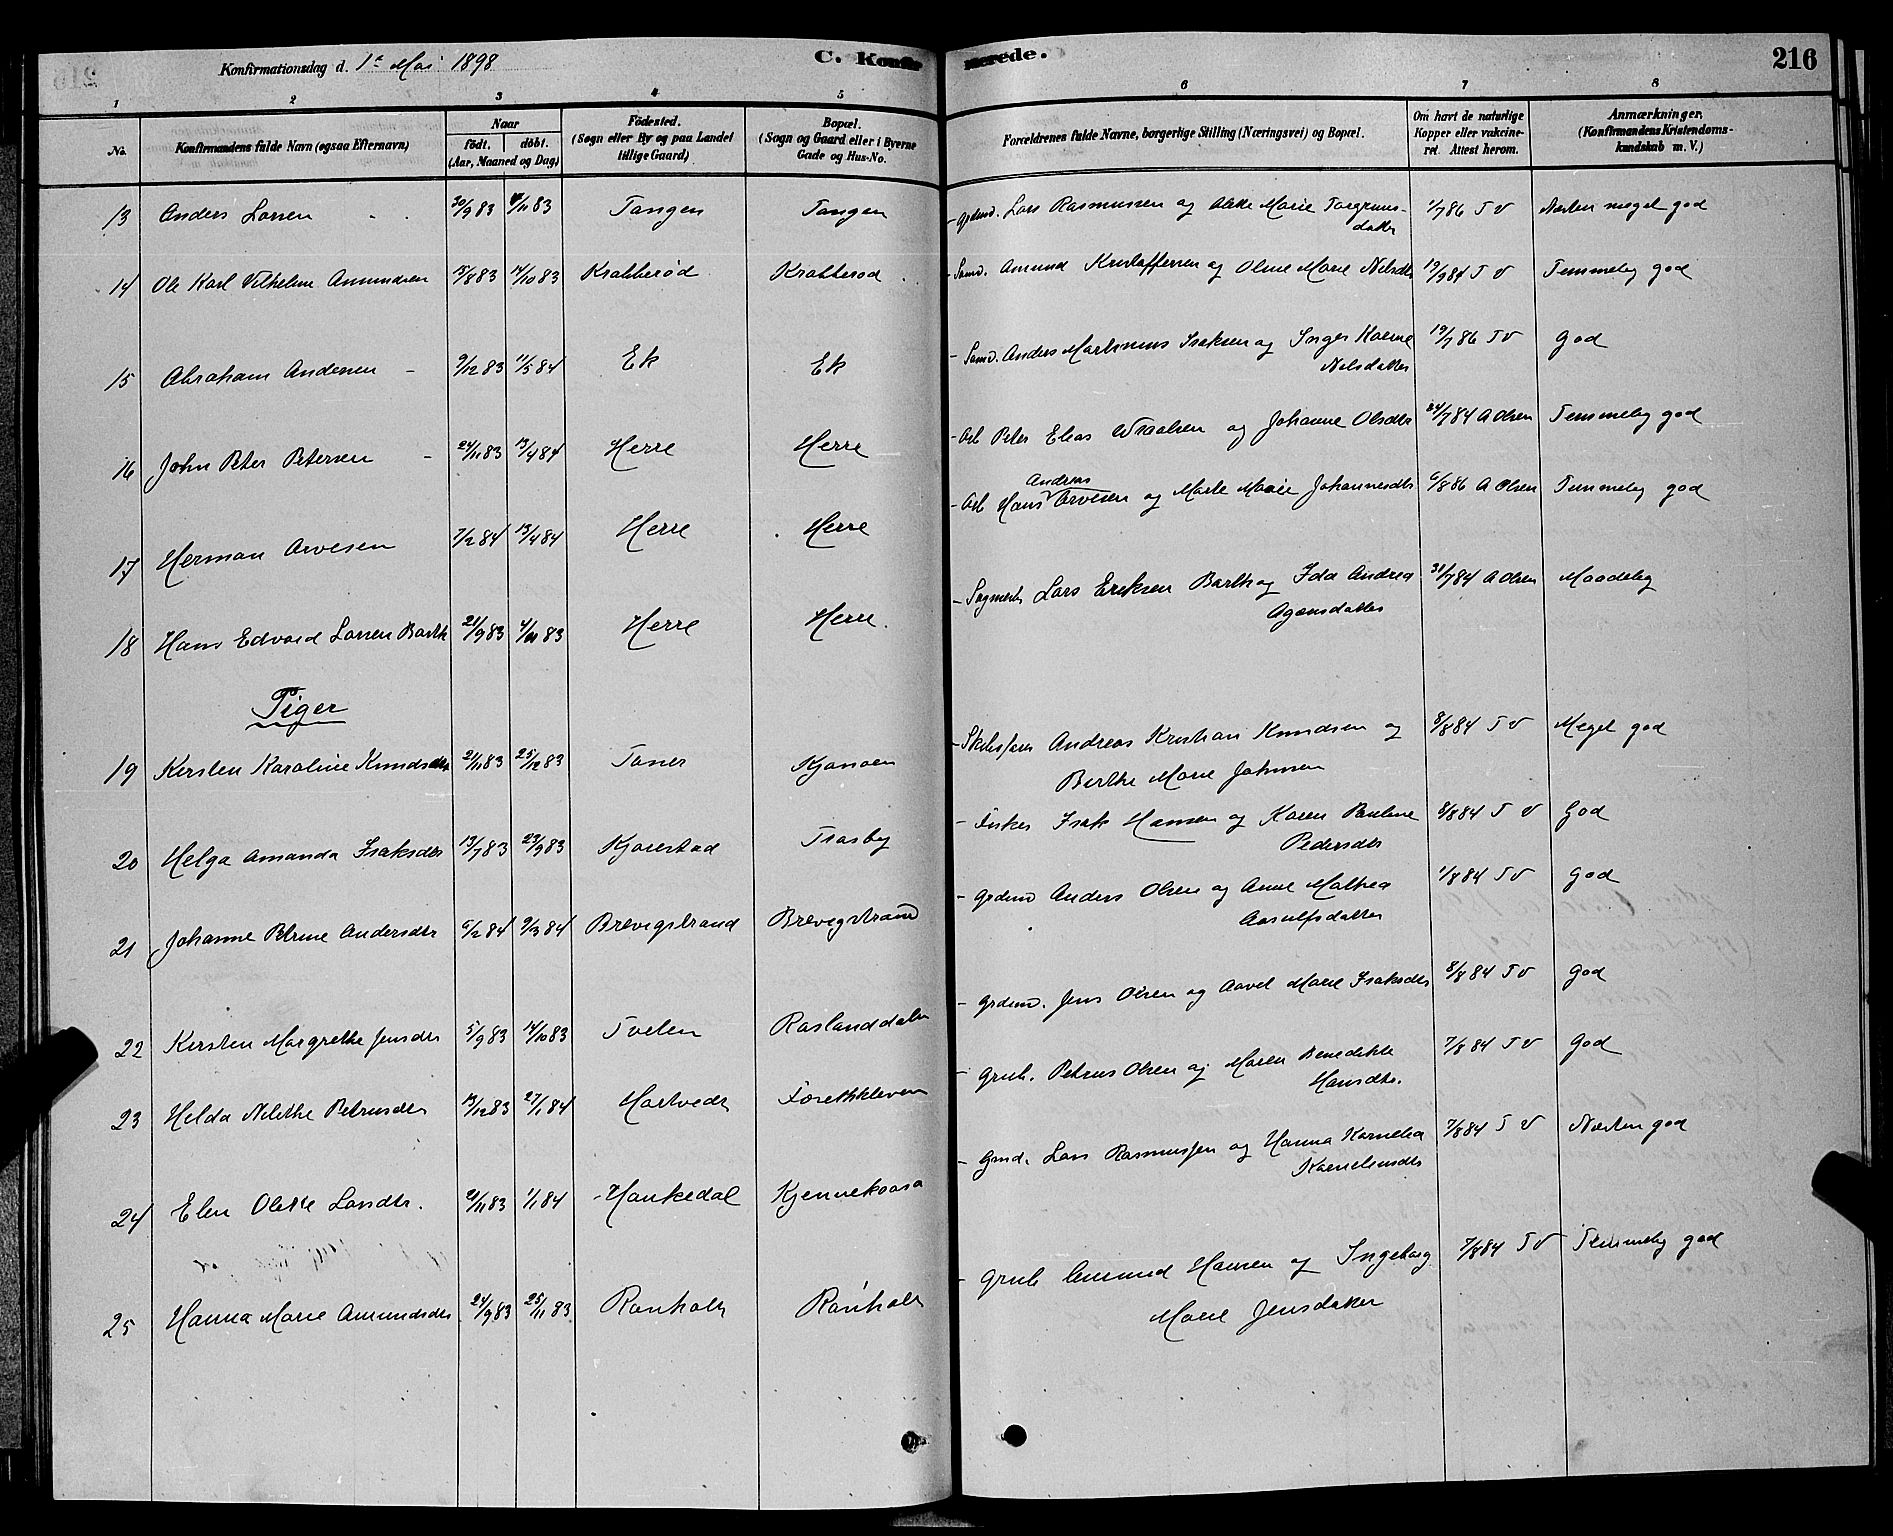 Konfirmationsdag d. 1e Mai 1898 C. Konfirmerede. 216
1 2 3 4 5 6 7 8
No. Konfirmandens fulde Navn (ogsaa Efternavn) Naar födt. döbt. (Aar, Maaned og Dag) Födested. (Sogn eller By og paa Landet tillige Gaard) Bopæl. (Sogn og Gaard eller i Byerne Gade og Hus-No. Forældrenes fulde Navne, borgerlige Stilling (Næringsvei) og Bopæl. Om havt de naturlige Kopper eller vakcineret. Attest herom. Anmærkninger. (Konfirmandens Kristendomskundskab m. V.)
13 Anders Larsen 30/9 83 /11 83 Tangen Tangen Lars Rasmussen og Marie Torgrims- 1/7 86 T V Næsten meget god
datter
14 Ole Karl Vilhelm Amundsen 15/8 83 14/10 83 Krabberød Krabberød Amund Kristoffersen og Oline Marie Nilsdtr 19/9 84 T V Temmelig god
15 Abraham Andersen 9/12 83 11/5 84 Ek Ek Anders Martinius Isaksen og Inger Karine 19/7 86 T V God
Nilsdatter
16 John Peter Petersen 24/11 83 13/4 84 Herre Herre Arb Peter Elias og Johanne Olsdtr 24/7 84 A Olsen Temmelig god
17 Herman Arvesen 7/2 84 13/4 84 Herre Herre Arb Hans Andreas Arvesen og Marte Marie Johannesdtr 6/8 86 A Olsen Temmelig god
18 Hans Edvard Larsen Barth 21/9 83 4/11 83 Herre Herre. Lars Eriksen Barth og Ida Andrea 31/7 84 A Olsen Maadelig
Agansdatter
Piger
19 Kirsten Karoline Knudsdtr 21/11 83 25/12 83 Kjønøen Andreas Kristian Knudsen og 8/8 84 T V Meget god
Berthe Marie Johnsen
20 Helga Amanda Isaksdtr 13/7 83 23/9 83 Kjørestad Traaby Fisker Isak Hansen og Karen Pauline 8/8 84 T V God
Pedersdtr
21 Johanne Petrine Andersdtr 6/2 84 9/3 84 Brevigstrand Brevigstrand Grdmd Anders Olsen og Anne Mathea 1/8 84 T V God
Aasulfsdatter
22 Kirsten Margrethe Jensdtr 5/9 83 14/10 83 Tveten Røslanddalen Grdmd. Jens Olsen og Marie Isaksdtr 8/8 84 T V God
23 Helda Petrusdtr 13/12 83 27/1 84 Hartvedt Grub. Petrus Olsen og Maren Benedikte 7/8 84 T V God
Hansdtr.
24 Elen Olette Larsdtr. 21/11 83 1/1 84 Haukedal Kjennekaasa Gmd. Lars Rasmussen og Hanna Kornelia 7/8 84 T V Næsten god
Korneliusdtr
25 Hanna Marie Amundsdtr 24/9 83 25/11 83 Rønholt Rønholt Grub Amund Hansen og Ingeborg 7/8 84 T V Temmelig god
Marie Jensdatter